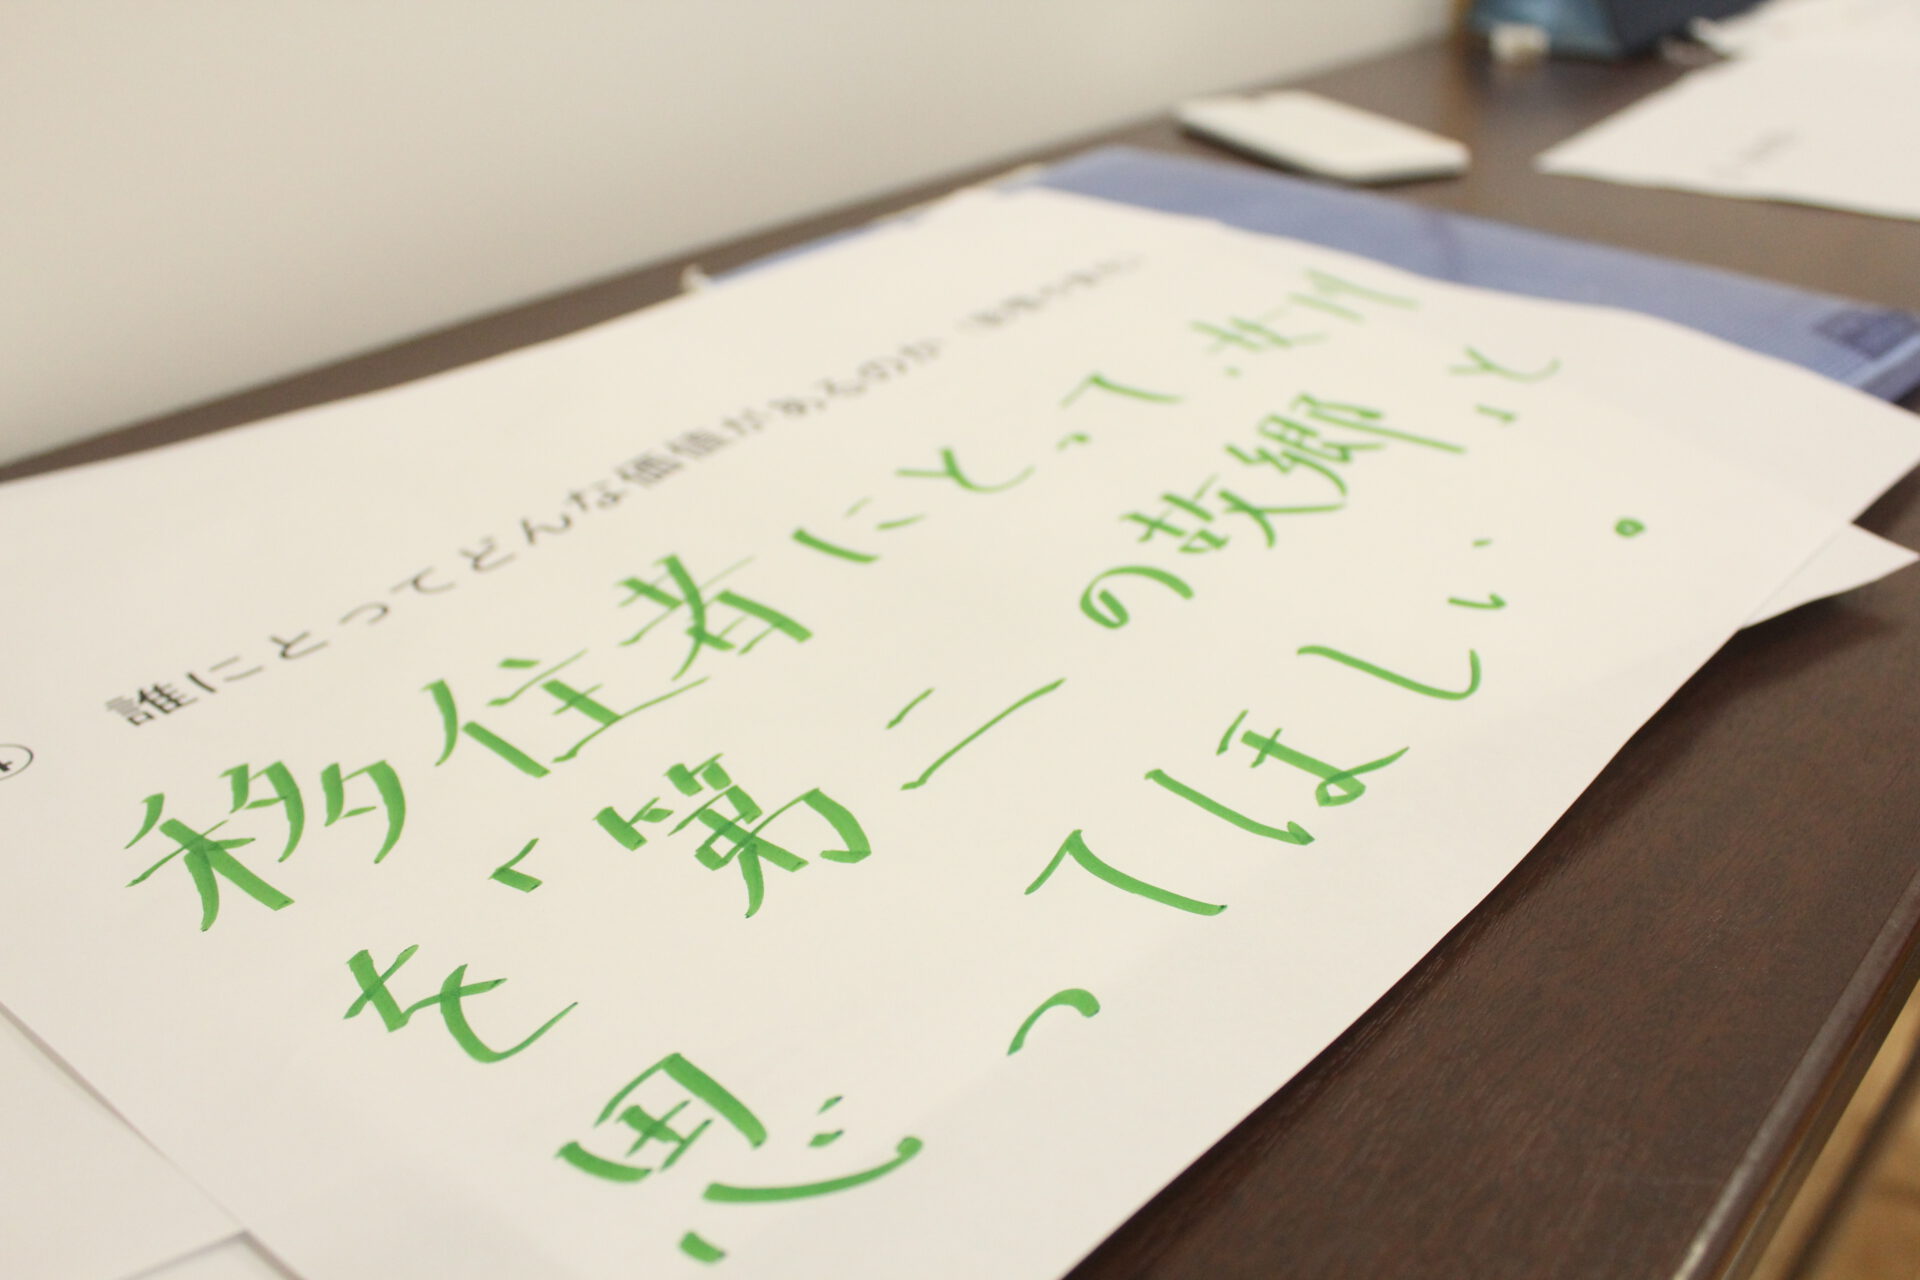 誰にとってどんな価値があるのか
移住者にとって、女川
を〝第二の故郷〟と
思ってほしい。